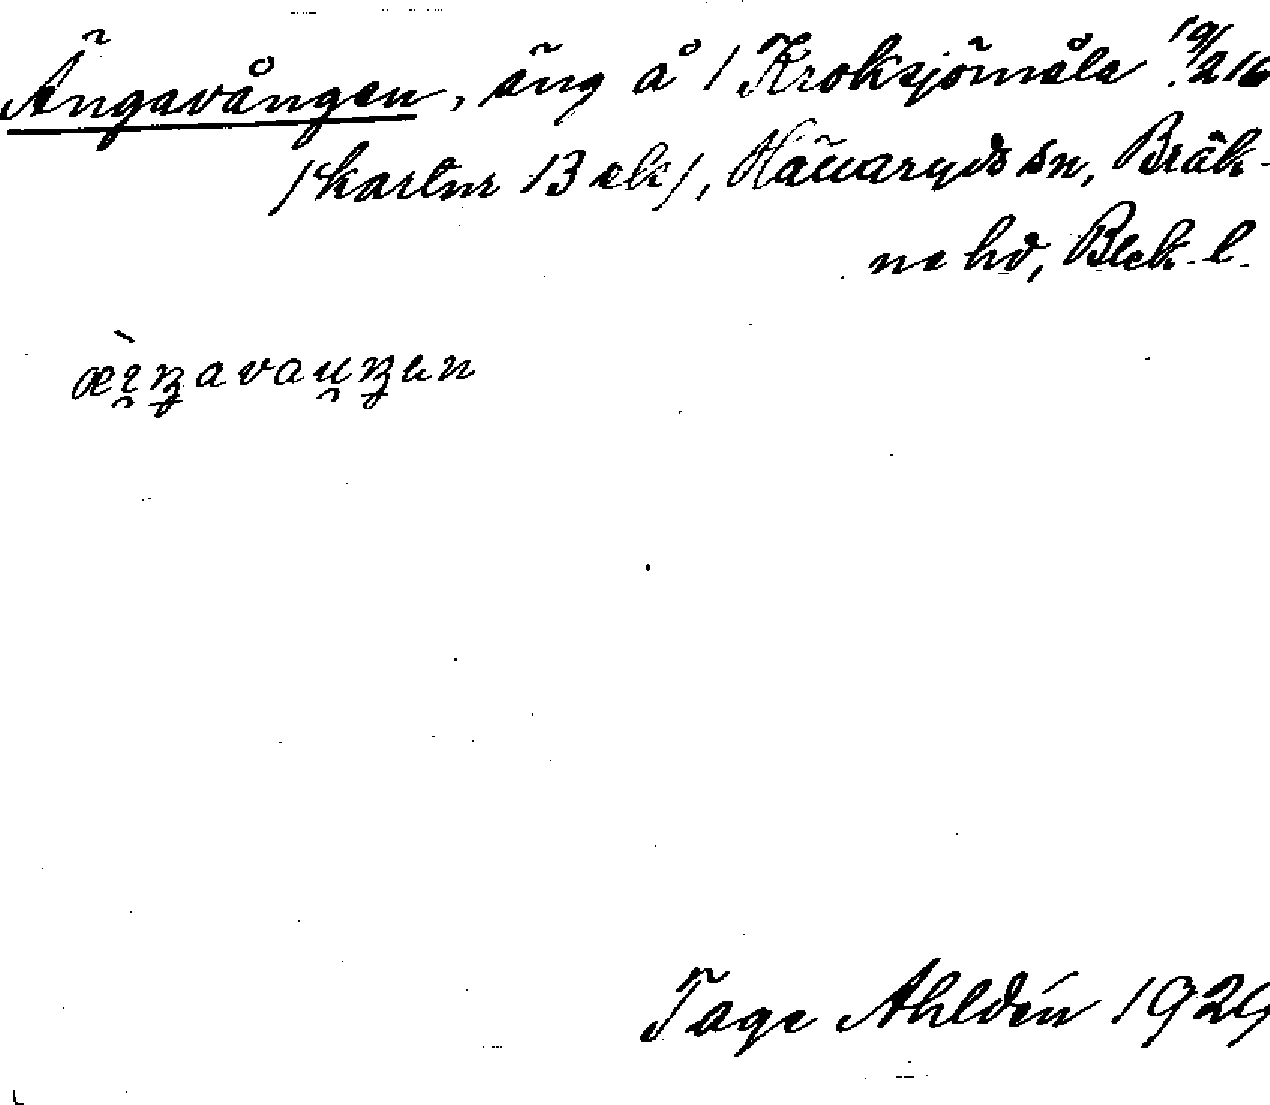 Ängavången, äng å 1 Kroksjömåla 19/2 16
/kartnr 13 ek/, Hällaryds sn, Bräk-
ne hd, Blek. l.
Tage Ahldén 1929